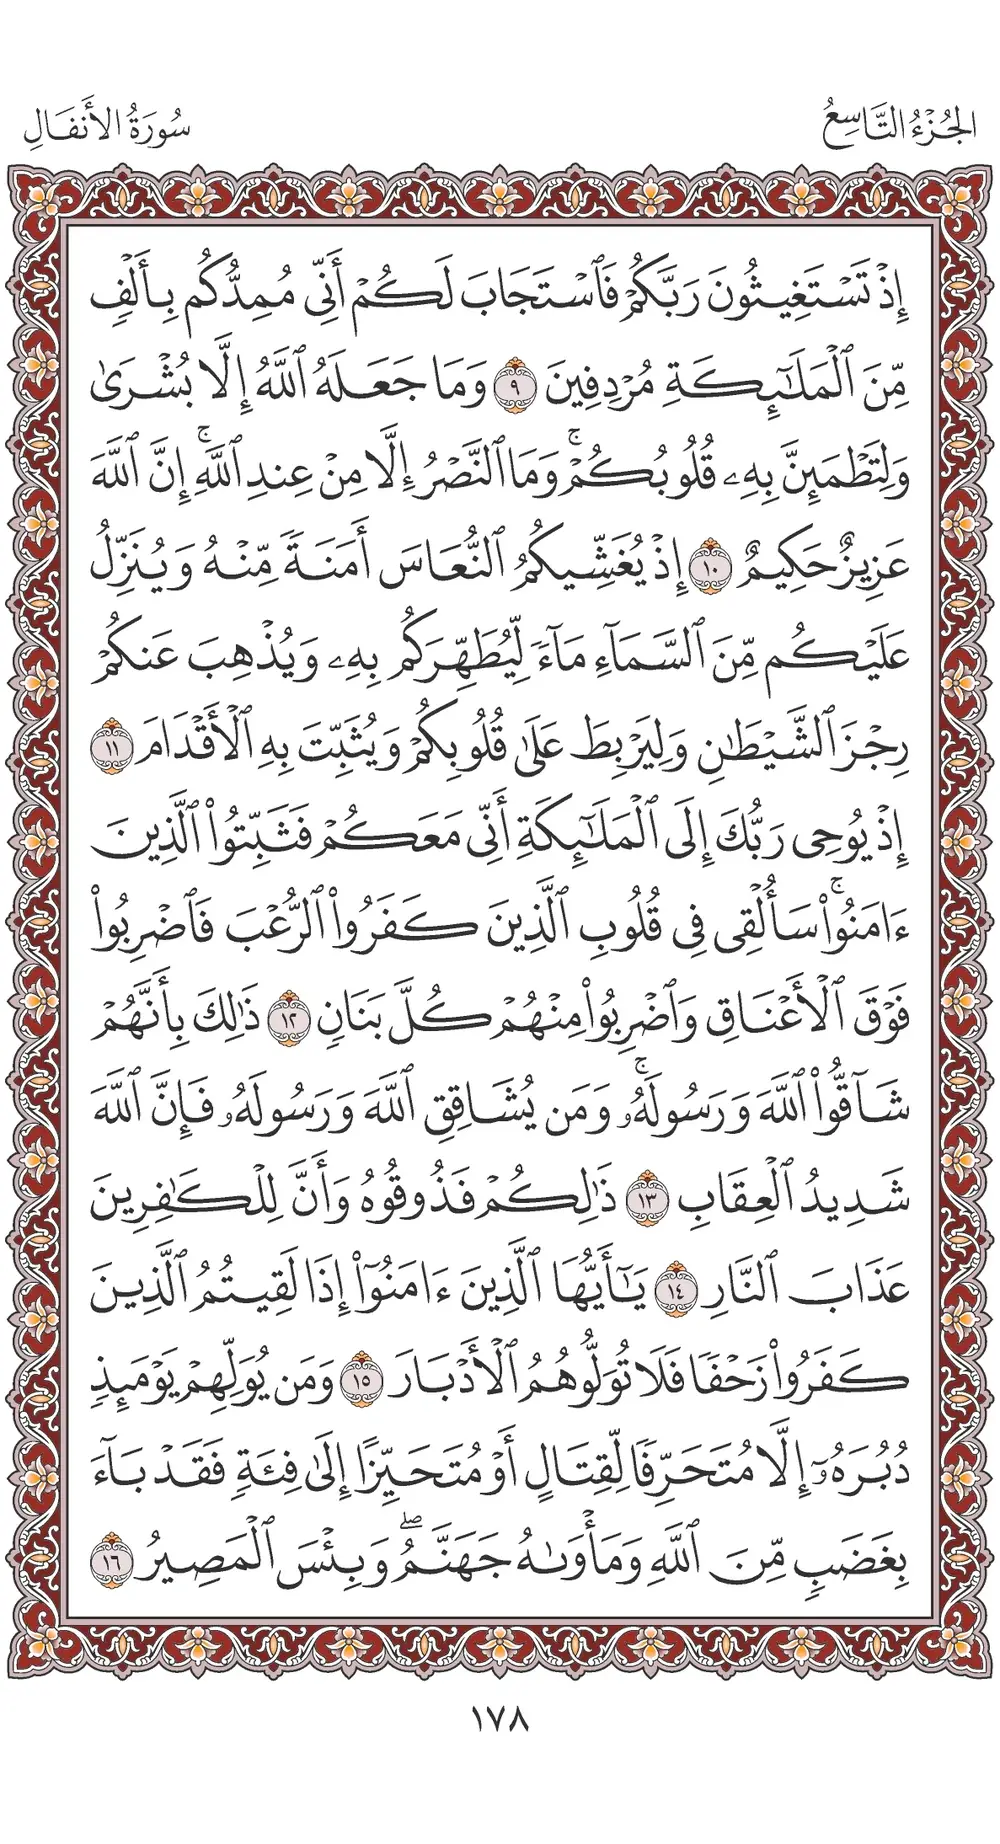 الجُزْءُ التَّاسِعُ
سُورَةُ الأَنفَالِ
إِذْ تَسْتَغِيثُونَ رَبَّكُمْ فَٱسْتَجَابَ لَكُمْ أَنِّى مُمِدُّكُم بِأَلْفٍ
مِّنَ ٱلْمَلَـٰٓئِكَةِ مُرْدِفِينَ ٩ وَمَا جَعَلَهُ ٱللَّهُ إِلَّا بُشْرَىٰ
وَلِتَطْمَئِنَّ بِهِۦ قُلُوبُكُمْ ۚ وَمَا ٱلنَّصْرُ إِلَّا مِنْ عِندِ ٱللَّهِ ۚ إِنَّ ٱللَّهَ
عَزِيزٌ حَكِيمٌ ١٠ إِذْ يُغَشِّيكُمُ ٱلنُّعَاسَ أَمَنَةً مِّنْهُ وَيُنَزِّلُ
عَلَيْكُم مِّنَ ٱلسَّمَآءِ مَآءً لِّيُطَهِّرَكُم بِهِۦ وَيُذْهِبَ عَنكُمْ
رِجْزَ ٱلشَّيْطَـٰنِ وَلِيَرْبِطَ عَلَىٰ قُلُوبِكُمْ وَيُثَبِّتَ بِهِ ٱلْأَقْدَامَ ١١
إِذْ يُوحِى رَبُّكَ إِلَى ٱلْمَلَـٰٓئِكَةِ أَنِّى مَعَكُمْ فَثَبِّتُوا۟ ٱلَّذِينَ
ءَامَنُوا۟ ۚ سَأُلْقِى فِى قُلُوبِ ٱلَّذِينَ كَفَرُوا۟ ٱلرُّعْبَ فَٱضْرِبُوا۟
فَوْقَ ٱلْأَعْنَاقِ وَٱضْرِبُوا۟ مِنْهُمْ كُلَّ بَنَانٍ ١٢ ذَٰلِكَ بِأَنَّهُمْ
شَآقُّوا۟ ٱللَّهَ وَرَسُولَهُۥ ۚ وَمَن يُشَاقِقِ ٱللَّهَ وَرَسُولَهُۥ فَإِنَّ ٱللَّهَ
شَدِيدُ ٱلْعِقَابِ ١٣ ذَٰلِكُمْ فَذُوقُوهُ وَأَنَّ لِلْكَـٰفِرِينَ
عَذَابَ ٱلنَّارِ ١٤ يَـٰٓأَيُّهَا ٱلَّذِينَ ءَامَنُوٓا۟ إِذَا لَقِيتُمُ ٱلَّذِينَ
كَفَرُوا۟ زَحْفًا فَلَا تُوَلُّوهُمُ ٱلْأَدْبَارَ ١٥ وَمَن يُوَلِّهِمْ يَوْمَئِذٍ
دُبُرَهُۥٓ إِلَّا مُتَحَرِّفًا لِّقِتَالٍ أَوْ مُتَحَيِّزًا إِلَىٰ فِئَةٍ فَقَدْ بَآءَ
بِغَضَبٍ مِّنَ ٱللَّهِ وَمَأْوَىٰهُ جَهَنَّمُ ۖ وَبِئْسَ ٱلْمَصِيرُ ١٦
١٧٨